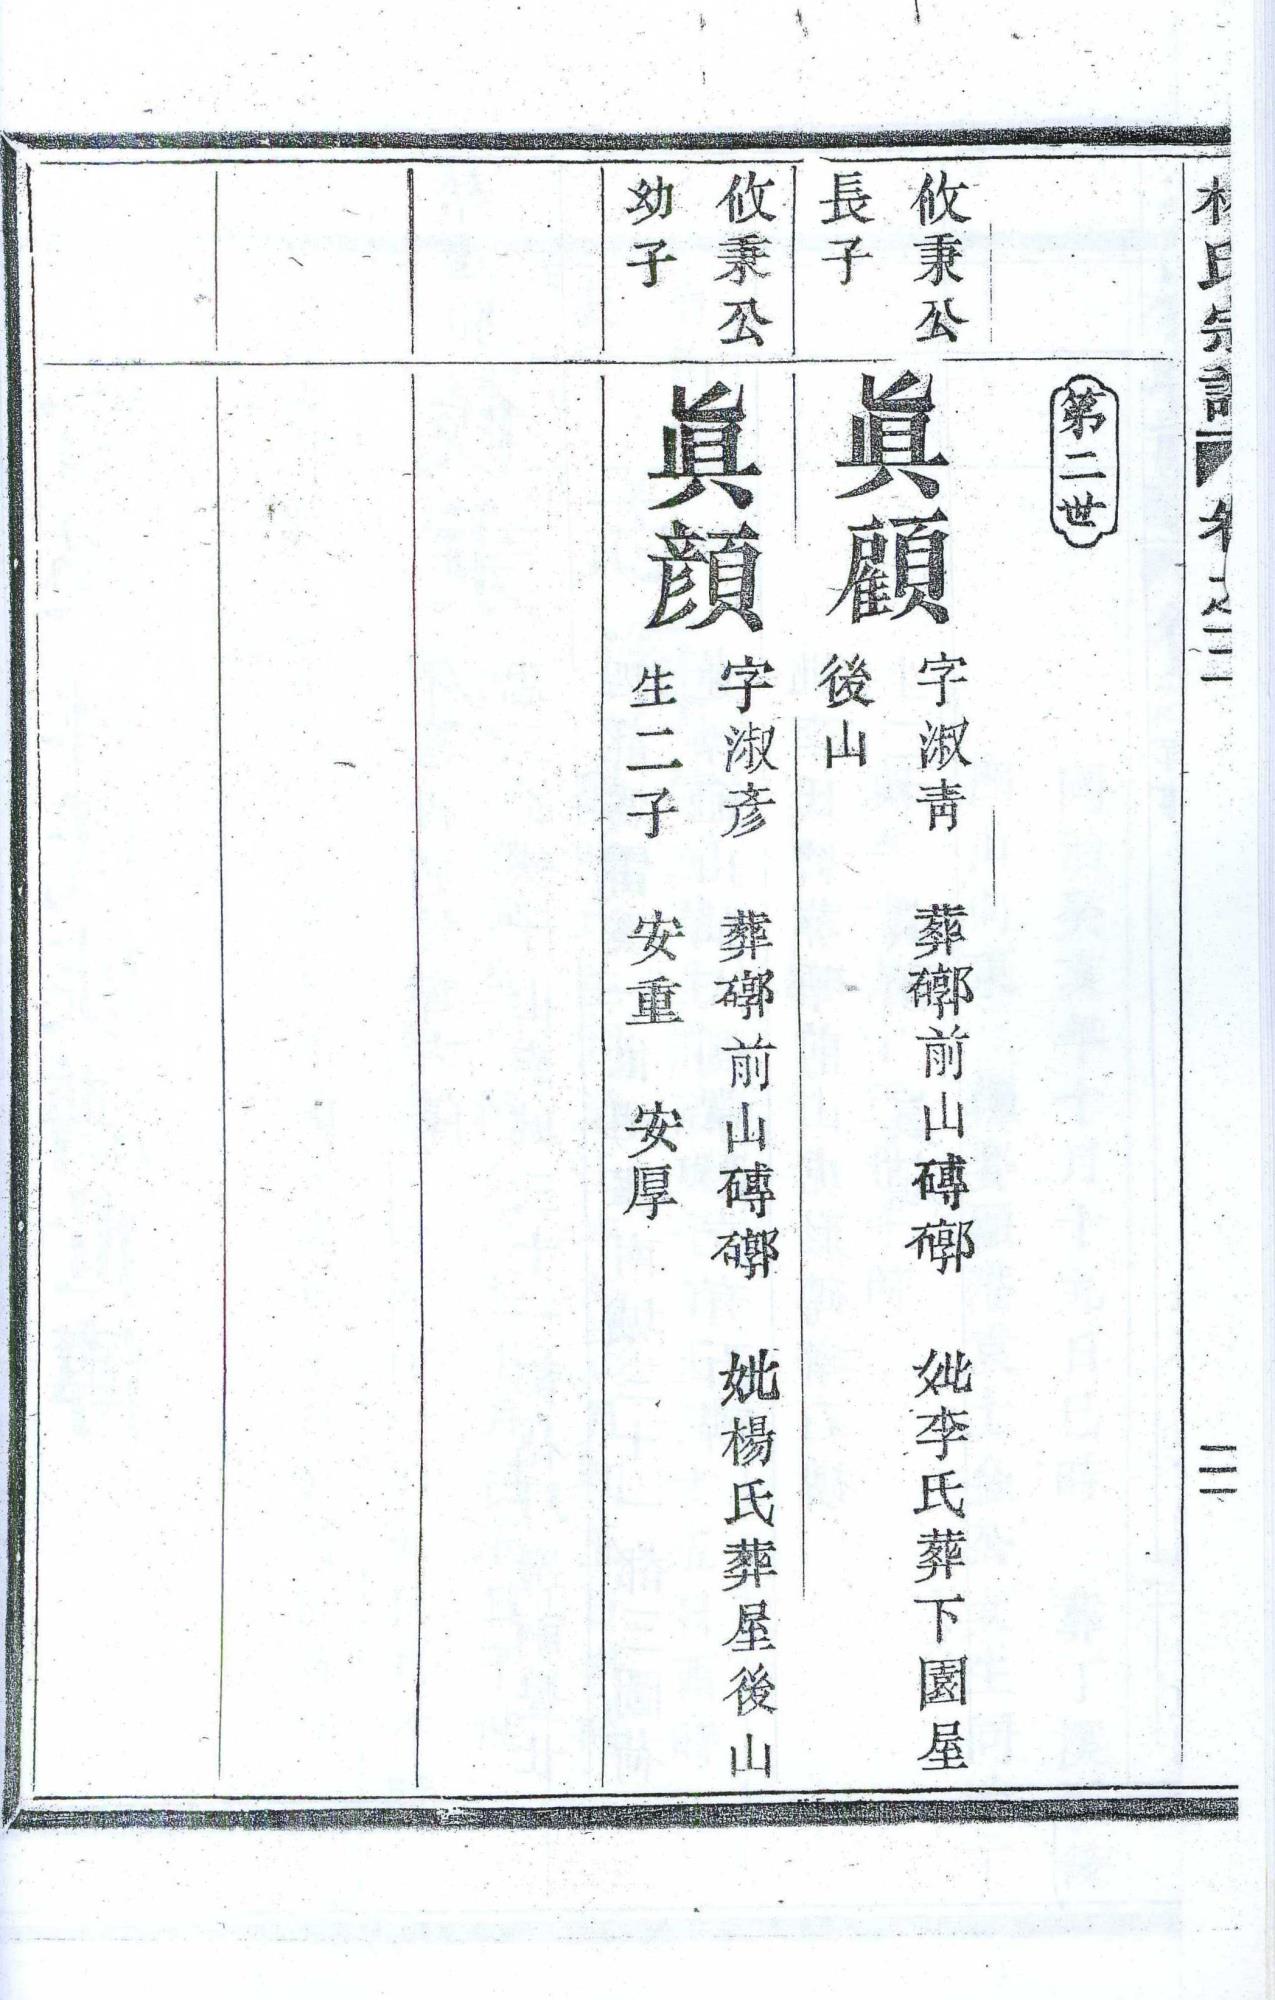 氏宗譜 卷之二
第二世
攸秉公
長子
眞顧
字淑靑 葬⿰石郭前山磚⿰石郭 妣李氏葬下園屋
後山
攸秉公
幼子
眞顔
字淑彥 葬⿰石郭前山磚⿰石郭 妣楊氏葬屋後山
生二子 安重 安厚